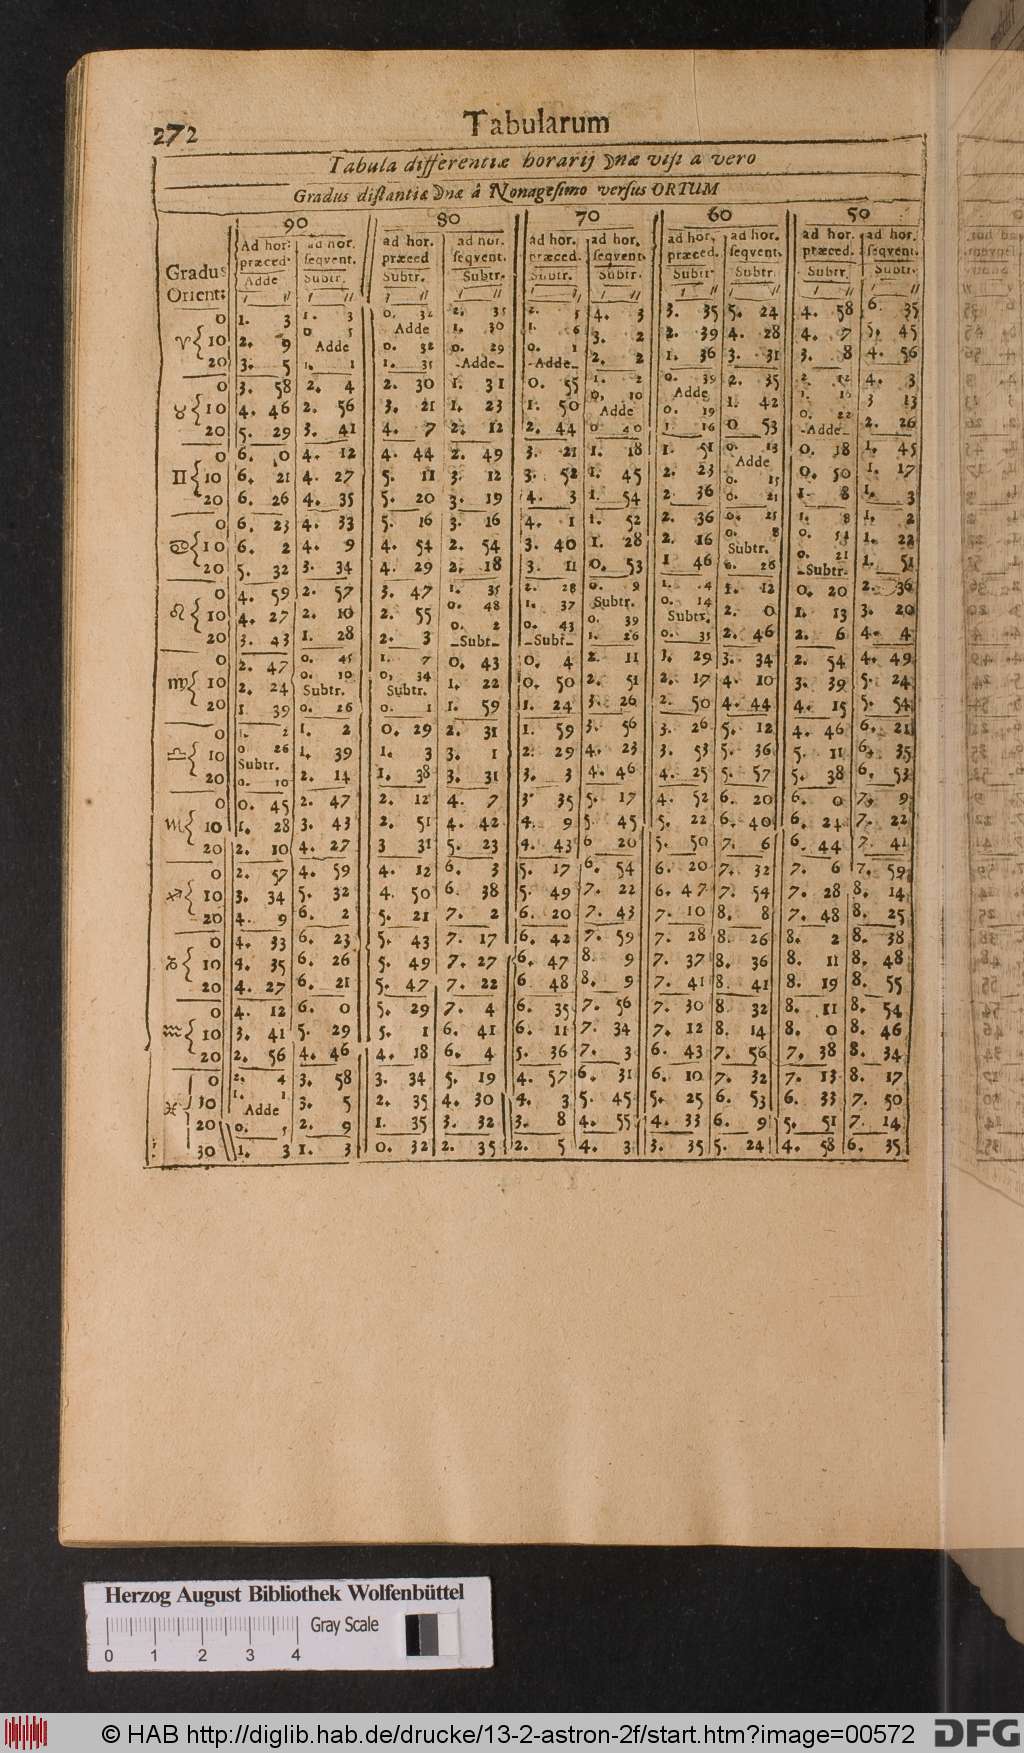 272 Tabularum
Tabula differentiæ horarij ☽næ visi a vero
Gradus distantiæ ☽næ â Nonagesimo versus ORTUM
90 80 70 60 50
Gradus Orient: Ad hor: præced. ad hor. seqvent. ad hor. præced ad hor. seqvent. ad hor. præced. ad hor. seqvent. ad hor. præced. ad hor. seqvent. ad hor. præced. ad hor. seqvent.
Adde Subtr. Subtr. Subtr. Subtr. Subtr. Subtr. Subtr. Subtr. Subtr.
♈ 0 1. 3 1. 3 0. 32 2. 35 2. 5 4. 3 3. 35 5. 24 4. 58 6. 35
10 2. 9 0 5 Adde 1. 30 1. 6 3. 2 2. 39 4. 28 4. 7 5. 45
Adde 0. 32 0. 29 0. 1
20 3. 5 1. 1 1. 35 -Adde- -Adde- 2. 2 1. 36 3. 31 3. 8 4. 56
♉ 0 3. 58 2. 4 2. 30 1. 31 0. 55 1. 2 0. 39 2. 35 2. 12 4. 3
10 4. 46 2. 56 3. 21 1. 23 1. 50 0. 10 Adde Adde 0. 19 1. 42 3 13
20 5. 29 3. 41 4. 7 2. 12 2. 44 0 40 1. 16 0 53 0. 22 -Adde- 2. 26
♊ 0 6. 0 4. 12 4. 44 2. 49 3. 21 1. 18 1. 51 0. 13 Adde 0. 18 1. 45
10 6. 21 4. 27 5. 11 3. 12 3. 52 1. 45 2. 23 0. 15 0. 50 1. 17
20 6. 26 4. 35 5. 20 3. 19 4. 3 1. 54 2 36 0. 21 1. 8 1. 3
♋ 0 6. 23 4. 33 5. 16 3. 16 4. 1 1. 52 2. 36 0. 25 1. 8 1. 2
10 6. 2 4. 9 4. 54 2. 54 3. 40 1. 28 2. 16 0. 8 Subtr. 0. 54 1. 22
20 5. 32 3. 34 4. 29 2. 18 3. 11 0. 53 1 46 0. 26 0. 21 -Subtr- 1. 51
♌ 0 4. 59 2. 57 3. 47 1. 35 2. 28 0. 9 Subtr. 1. 4 1. 12 0. 20 2. 36
10 4. 27 2. 10 2. 55 0. 48 1. 37 0. 39 0. 14 Subtr. 2. 0 1. 13 3. 20
20 3. 43 1. 28 2. 3 0. 2 -Subt- 0. 43 -Subt- 1. 26 0. 35 2. 46 2. 6 4. 4
♍ 0 2. 47 0. 45 1. 7 0. 43 0. 4 2. 11 1. 29 3. 34 2. 54 4. 49
10 2. 24 0. 10 Subtr. 0. 34 Subtr. 1. 22 0. 50 2. 51 2. 17 4. 10 3. 39 5. 24
20 1. 39 0. 26 0. 1 1. 59 1. 24 3. 26 2. 50 4. 44 4. 15 5. 54
♎ 0 1. 2 1. 2 0. 29 2. 31 1. 59 3. 56 3. 26 5. 12 4. 46 6. 21
10 0 26 Subtr. 1. 39 1. 3 3. 1 2. 29 4. 23 3. 53 5. 36 5. 11 6. 35
20 0. 10 2. 14 1. 38 3. 31 3. 3 4. 46 4. 25 5. 57 5. 38 6. 53
♏ 0 0. 45 2. 47 2. 12 4. 7 3. 35 5. 17 4. 52 6. 20 6. 0 7. 9
10 1. 28 3. 43 2. 51 4. 42 4. 9 5. 45 5. 22 6. 40 6. 24 7. 22
20 2. 10 4. 27 3 31 5. 23 4. 43 6 20 5. 50 7. 6 6. 44 7. 41
♐ 0 2. 57 4. 59 4. 12 6. 3 5. 17 6. 54 6. 20 7. 32 7. 6 7. 59
10 3. 34 5. 32 4. 50 6. 38 5. 49 7. 22 6. 47 7. 54 7. 28 8. 14
20 4. 9 6. 2 5. 21 7. 2 6. 20 7. 43 7. 10 8. 8 7. 48 8. 25
♑ 0 4. 33 6. 23 5. 43 7. 17 6. 42 7. 59 7. 28 8. 26 8. 2 8. 38
10 4. 35 6. 26 5. 49 7. 27 6. 47 8. 9 7. 37 8. 36 8. 11 8. 48
20 4. 27 6. 21 5. 47 7. 22 6 48 8. 9 7. 41 8. 41 8. 19 8. 55
♒ 0 4. 12 6. 0 5. 29 7. 4 6. 35 7. 56 7. 30 8. 32 8. 11 8. 54
10 3. 41 5. 29 5. 1 6. 41 6. 11 7. 34 7. 12 8. 14 8. 0 8. 46
20 2. 56 4. 46 4. 18 6. 4 5. 36 7. 3 6. 43 7. 56 7. 38 8. 34
♓ 0 2. 4 3. 58 3. 34 5. 19 4. 57 6. 31 6. 10 7. 32 7. 13 8. 17
10 1. 1 Adde 3. 5 2. 35 4. 30 4. 3 5. 45 5. 25 6. 53 6. 33 7. 50
20 0. 5 2. 9 1. 35 3. 32 3. 8 4. 55 4. 33 6. 9 5. 51 7. 14
30 1. 3 1. 3 0. 32 2. 35 2. 5 4. 3 3. 35 5. 24 4. 58 6. 35
Herzog August Bibliothek Wolfenbüttel
Gray Scale
0 1 2 3 4
© HAB http://diglib.hab.de/drucke/13-2-astron-2f/start.htm?image=00572 DFG